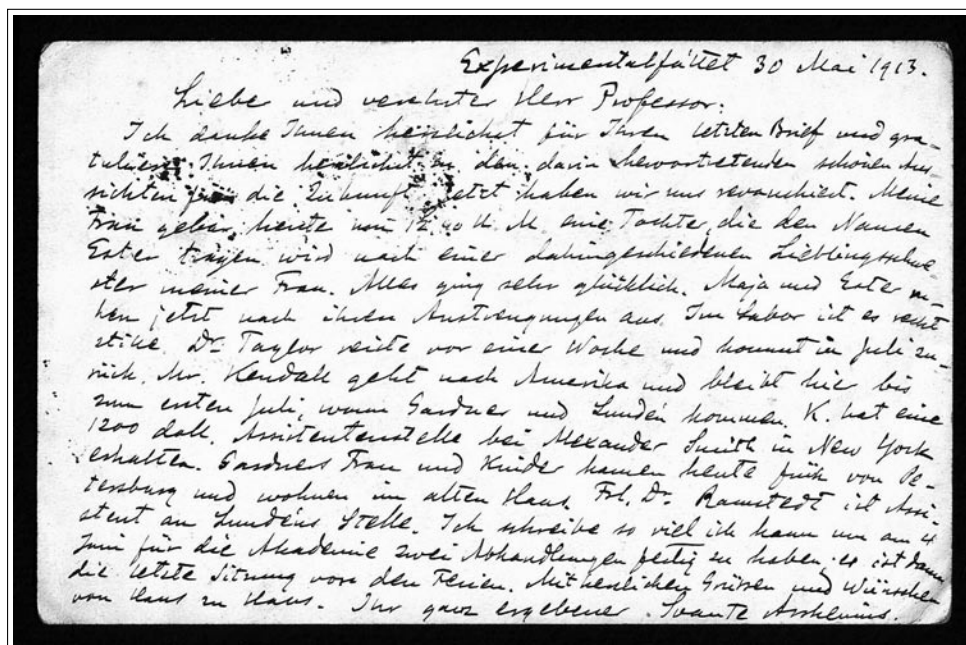 Experimentalfältet 30 Mai 1913.
Liebe und verehrter Herr Professor.
Ich danke Ihnen herzlichst für Ihren letzten Brief und gra-
tuliere Ihnen herzlichst zu den darin hervortretenden schönen Aus-
sichten für die Zukunft. Jetzt haben wir uns revanchiert. Meine
Frau gebar heute um 12.40 U. M. eine Tochter, die den Namen
Ester tragen wird nach einer dahingeschiedenen Lieblingsschwe-
ster meiner Frau. Alles ging sehr glücklich. Maja und Ester ru-
hen jetzt nach ihren Anstrengungen aus. Im Labor ist es recht
stille. Dr. Taylor reiste vor einer Woche und kommt in Juli zu-
rück. Mr. Kendall geht nach Amerika und bleibt hier bis
zum ersten Juli, wann Gardner und Lunden kommen. K. hat eine
1200 doll. Assistentenstelle bei Alexander Smith in New York
erhalten. Gardners Frau und Kinder kamen heute früh von Pe-
tersburg und wohnen im alten Haus. Frl. Dr. Ramstedt ist Assi-
stent an Lundéns Stelle. Ich schreibe so viel ich kann um am 4
Juni für die Akademie zwei Abhandlungen fertig zu haben; es ist dann
die letzte Sitzung vor den Ferien. Mit herzlichen Grüssen und Wünschen
von Haus zu Haus. Ihr ganz ergebener Svante Arrhenius.